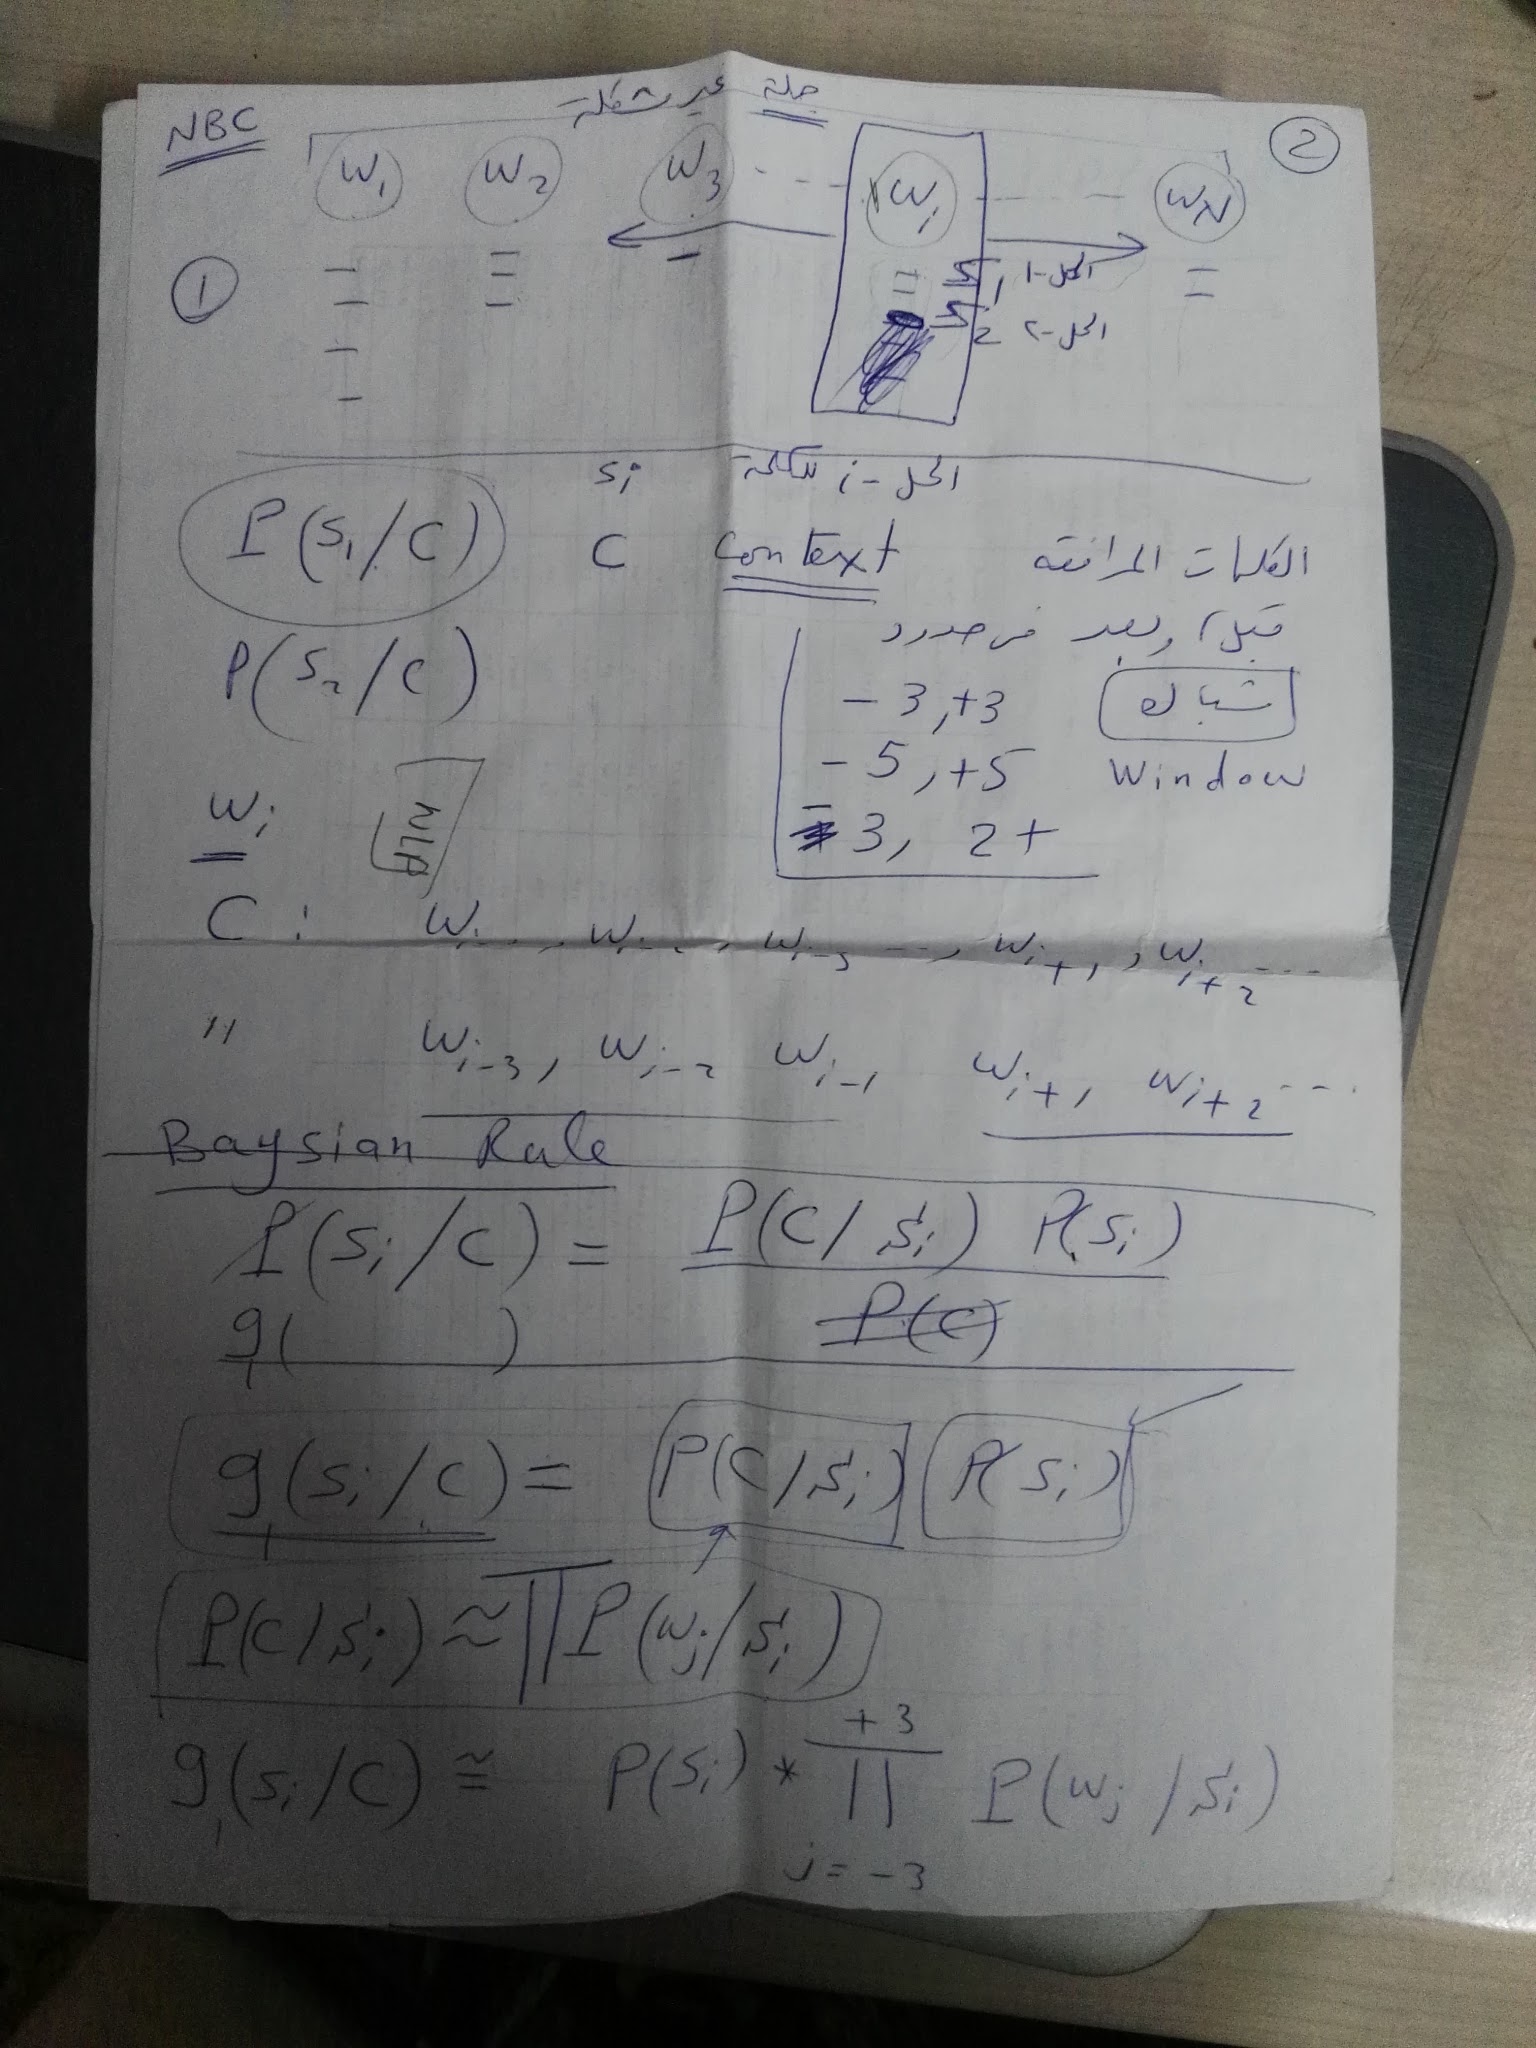 NBC
جملة غير مشكلة
2
W1 W2 W3 - - - Wi - - - WN
1
S1 الحل-1
S2 الحل-2
Si الحل-i للكلمة
P(S1/C) C Context الكلمات المرافقة
قبل وبعد في حدود
P(S2/C) -3,+3 شباك
-5,+5 Window
Wi 3, 2+
C : Wi-1, Wi-2, Wi-3 ---, Wi+1, Wi+2 ---
" Wi-3, Wi-2 Wi-1 Wi+1, Wi+2 ---
Baysian Rule
P(Si/C) = P(C/Si) P(Si)
g( ) P(C)
g(Si/C) = P(C/Si) P(Si)
P(C/Si) ≈ ∏ P(Wj/Si)
g(Si/C) ≅ P(Si) * ∏ P(Wj/Si)
+3
j = -3